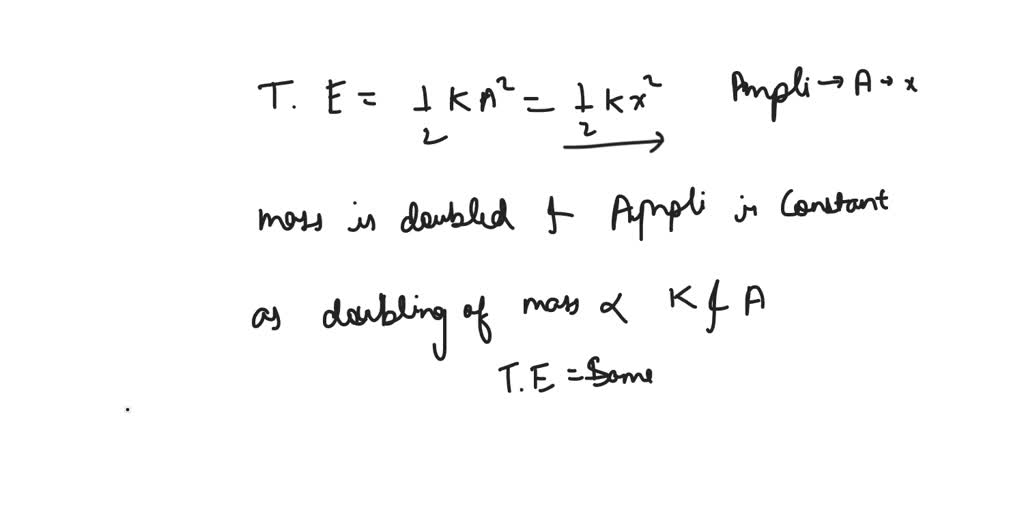 T. E = 1/2 K A² = 1/2 K x² Ampli → A → x
mass is doubled & Ampli is Constant
as doubling of mass ∝ K & A
T.E = Same